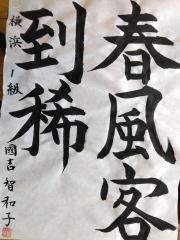 春風客
到稀
横浜 一級 國吉智和子